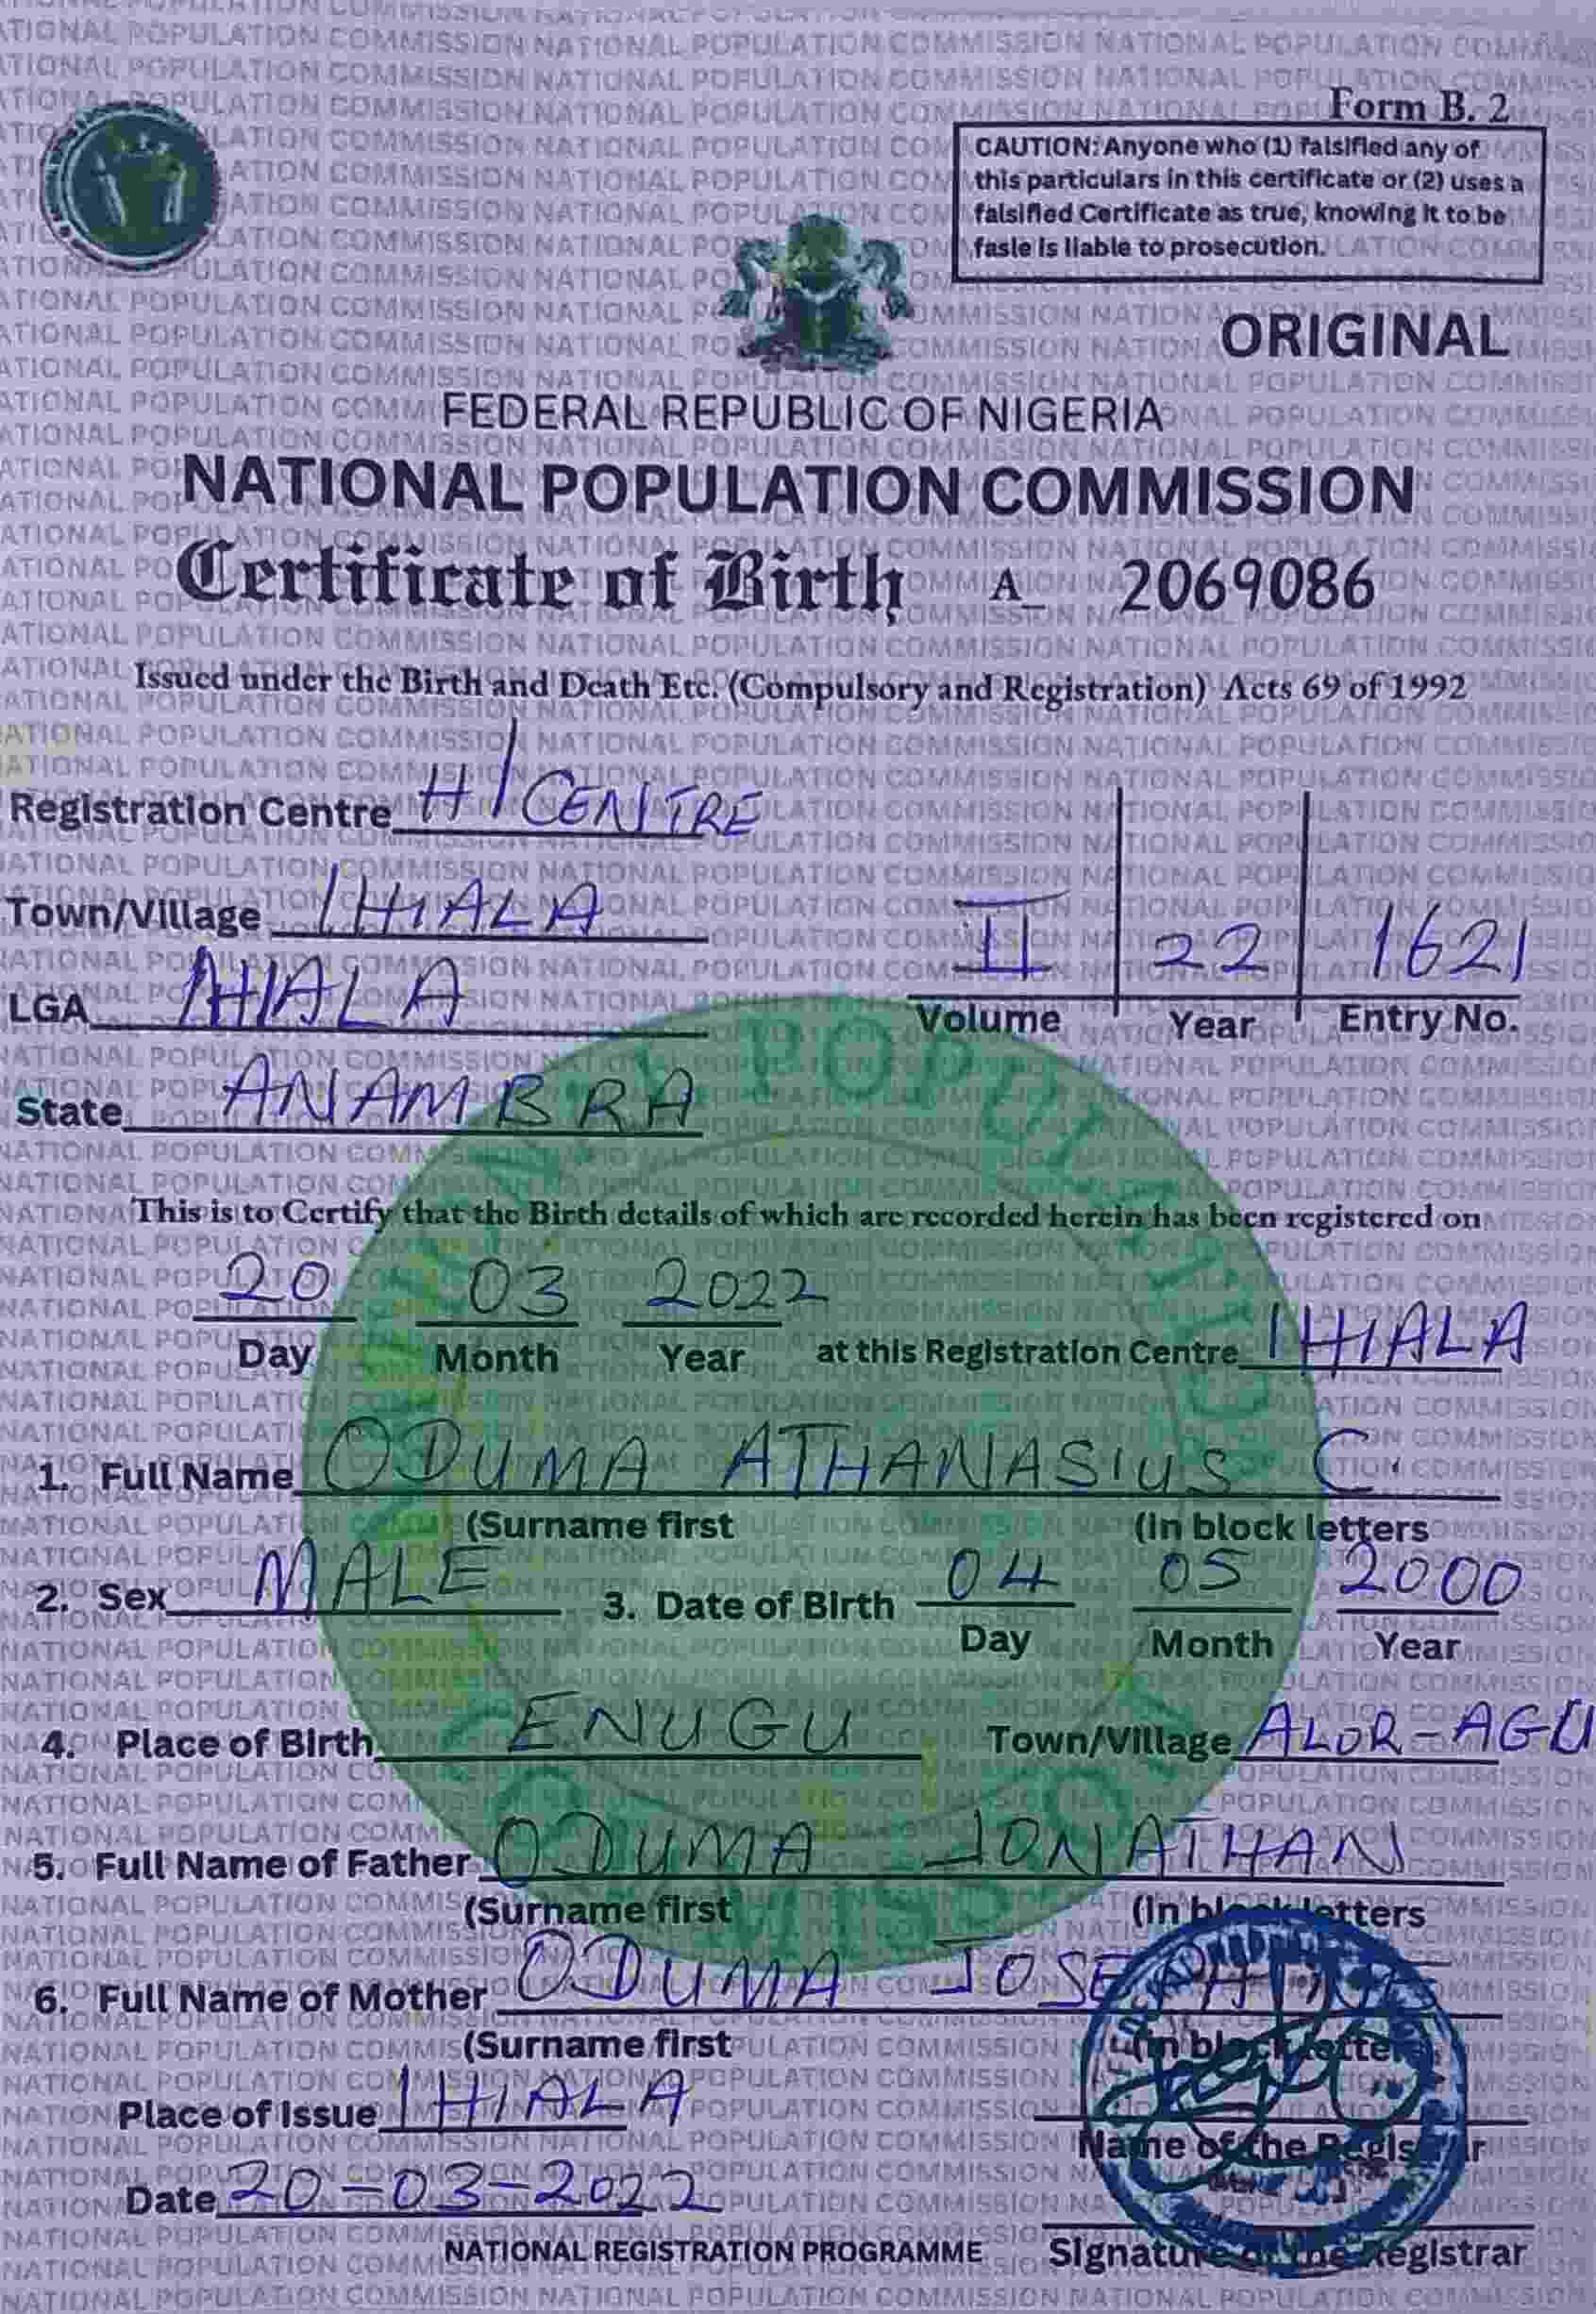 Form B. 2
CAUTION: Anyone who (1) falsified any of
this particulars in this certificate or (2) uses a
falsified Certificate as true, knowing it to be
fasle is liable to prosecution.
ORIGINAL
FEDERAL REPUBLIC OF NIGERIA
NATIONAL POPULATION COMMISSION
Certificate of Birth A_ 2069086
Issued under the Birth and Death Etc. (Compulsory and Registration) Acts 69 of 1992
Registration Centre H/CENTRE
Town/Village IHIALA
LGA IHIALA
II 22 1621
Volume Year Entry No.
State ANAMBRA
This is to Certify that the Birth details of which are recorded herein has been registered on
20 03 2022
Day Month Year at this Registration Centre IHIALA
1. Full Name ODUMA ATHANASIUS C.
(Surname first (In block letters
2. Sex MALE 3. Date of Birth 04 05 2000
Day Month Year
4. Place of Birth ENUGU Town/Village ALOR-AGU
5. Full Name of Father ODUMA JONATHAN
(Surname first (In block letters
6. Full Name of Mother ODUMA JOSEPHINE
(Surname first (In block letters
Place of Issue IHIALA
Name of the Registrar
Date 20-03-2022
NATIONAL REGISTRATION PROGRAMME Signature of the Registrar
NATIONAL POPULATION COMMISSION